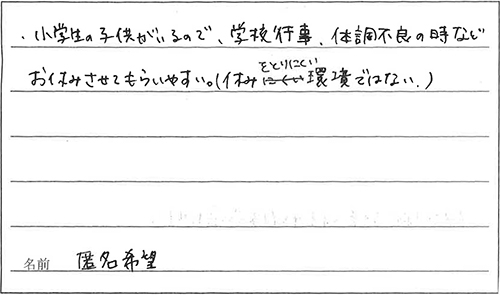 ・小学生の子供がいるので、学校行事、体調不良の時など
お休みさせてもらいやすい。(休みをとりにくい環境ではない。)
名前 匿名希望